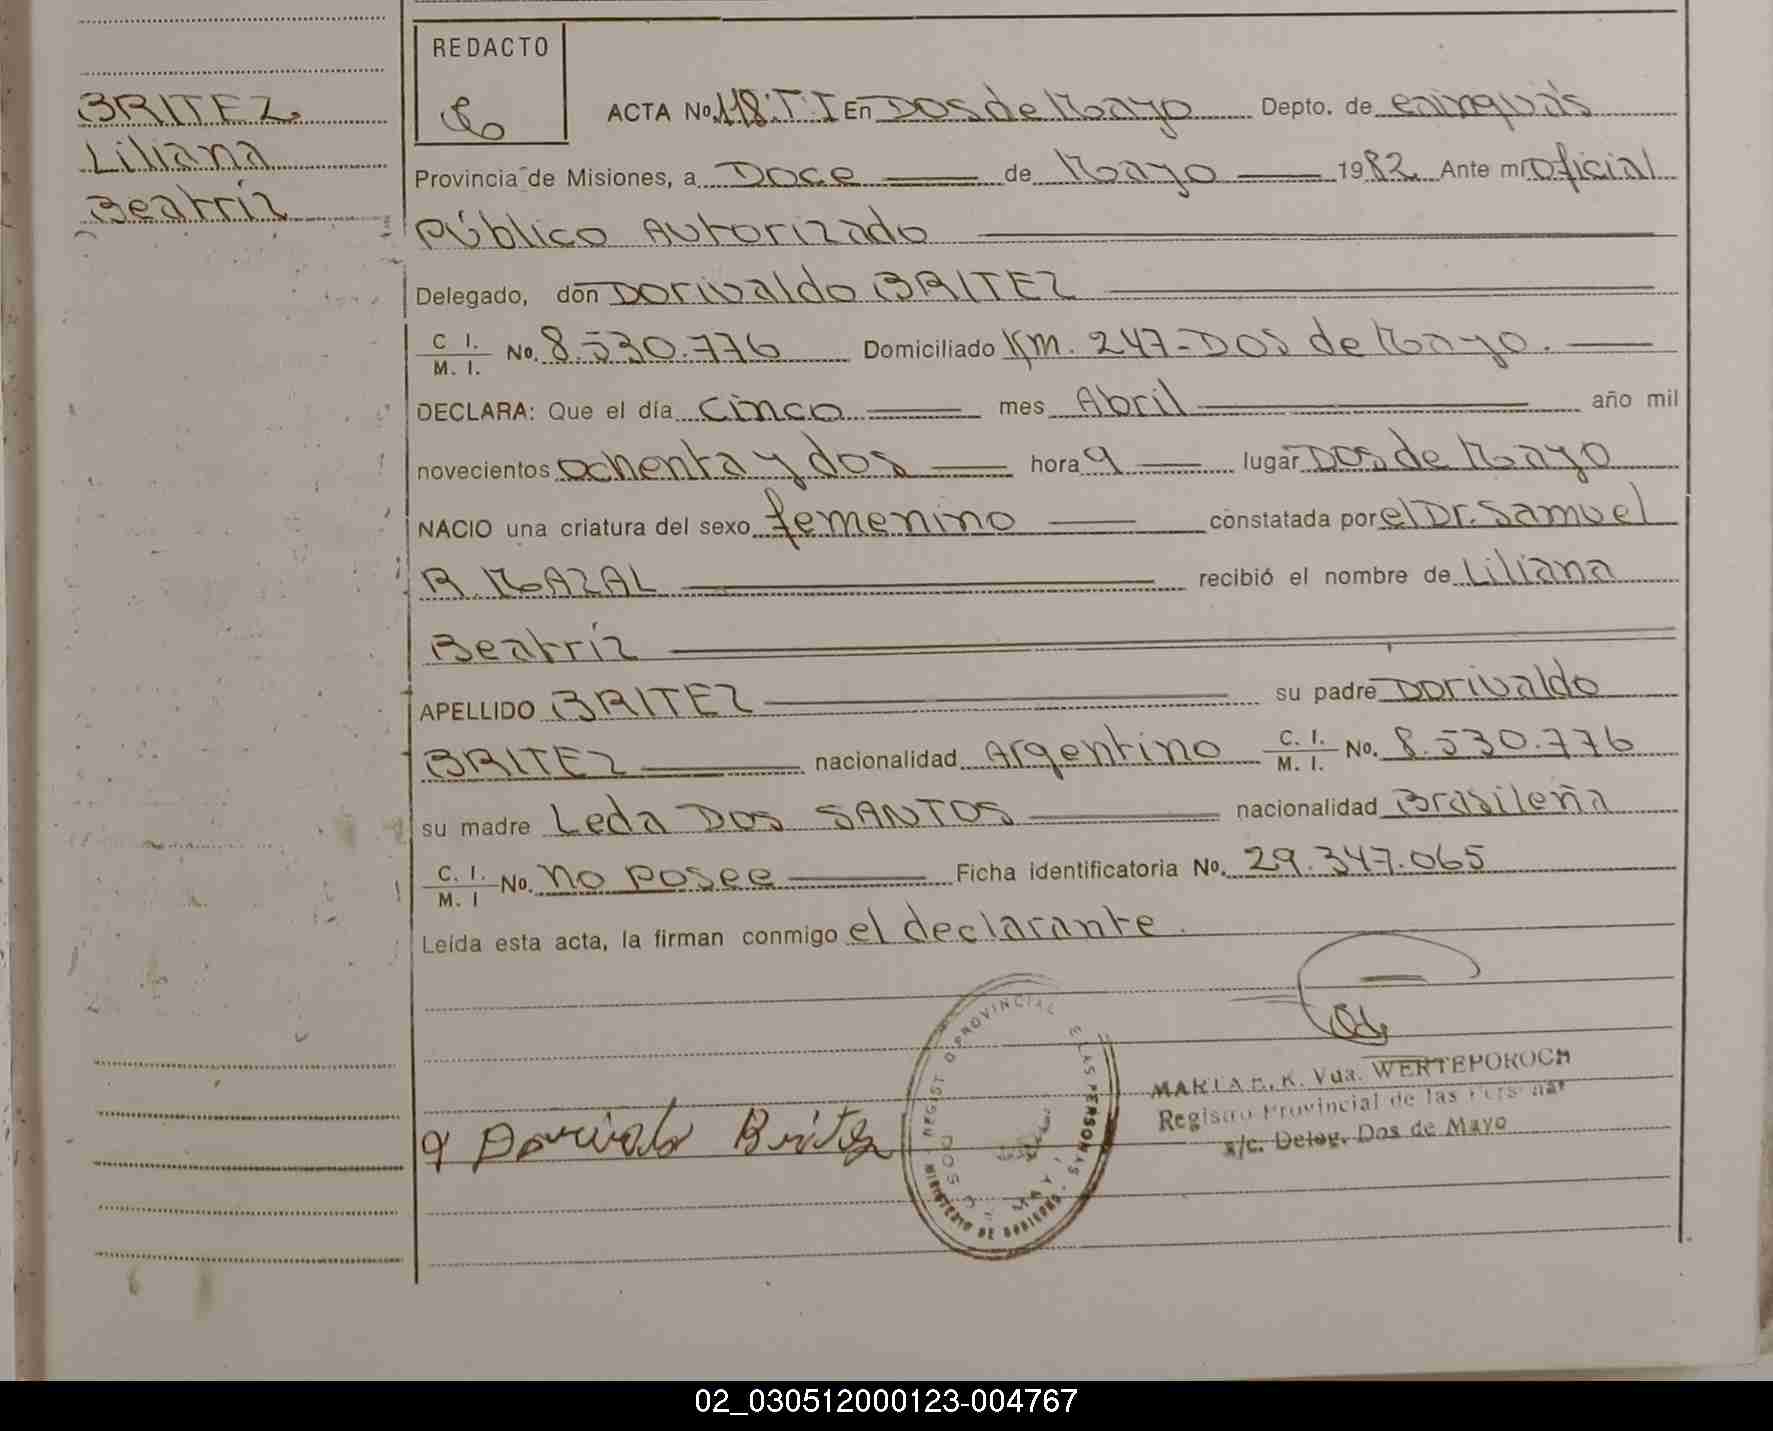 BRITEZ
Liliana
Beatríz
REDACTO
ACTA No. 118. T I En Dos de Mayo Depto. de cainguás
Provincia de Misiones, a Doce de Mayo 1982 Ante mi Oficial
Público Autorizado
Delegado, don Dorivaldo BRITEZ
C. I. / M. I. No. 8.530.776 Domiciliado Km. 247-Dos de Mayo.
DECLARA: Que el día cinco mes Abril año mil
novecientos ochenta y dos hora 9 lugar Dos de Mayo
NACIO una criatura del sexo femenino constatada por el Dr. Samuel
R. MAZAL recibió el nombre de Liliana
Beatríz
APELLIDO BRITEZ su padre Dorivaldo
BRITEZ nacionalidad Argentino C. I. / M. I. No. 8.530.776
su madre Leda Dos SANTOS nacionalidad Brasileña
C. I. / M. I No. no posee Ficha identificatoria No. 29.347.065
Leída esta acta, la firman conmigo el declarante.
Dorivaldo Britez
REGISTRO PROVINCIAL DE LAS PERSONAS
MINISTERIO DE GOBIERNO
MARIA E. K. Vda. WERTEPOROCH
Registro Provincial de las Personas
a/c. Deleg. Dos de Mayo
02_030512000123-004767